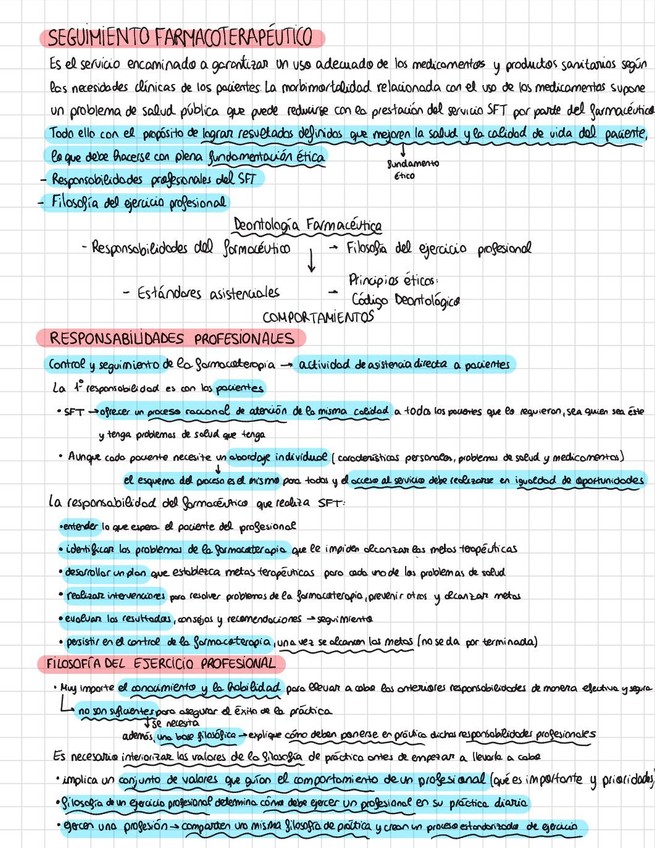 SEGUIMIENTO FARMACOTERAPÉUTICO
Es el servicio encaminado a garantizar un uso adecuado de los medicamentos y productos sanitarios según
las necesidades clínicas de los pacientes. La morbimortalidad relacionada con el uso de los medicamentos supone
un problema de salud pública que puede reducirse con la prestación del servicio SFT por parte del farmacéutico
Todo ello con el propósito de lograr resultados definidos que mejoren la salud y la calidad de vida del paciente,
lo que debe hacerse con plena fundamentación ética
↓
fundamento
ético
- Responsabilidades profesionales del SFT
- Filosofía del ejercicio profesional
Deontología Farmacéutica
- Responsabilidades del farmacéutico ↓ → Filosofía del ejercicio profesional
- Estándares asistenciales → Principios éticos:
Código Deontológico
COMPORTAMIENTOS
RESPONSABILIDADES PROFESIONALES
Control y seguimiento de la farmacoterapia → actividad de asistencia directa a pacientes
La 1ª responsabilidad es con los pacientes
• SFT → ofrecer un proceso racional de atención de la misma calidad a todos los pacientes que lo requieran, sea quien sea éste
y tenga problemas de salud que tenga
• Aunque cada paciente necesite un abordaje individual (características personales, problemas de salud y medicamentos)
↓
el esquema del proceso es el mismo para todos y el acceso al servicio debe realizarse en igualdad de oportunidades
La responsabilidad del farmacéutico que realiza SFT:
• entender lo que espera el paciente del profesional
• identificar los problemas de la farmacoterapia que le impiden alcanzar las metas terapéuticas
• desarrollar un plan que establezca metas terapéuticas para cada uno de los problemas de salud
• realizar intervenciones para resolver problemas de la farmacoterapia, prevenir otros y alcanzar metas
• evaluar los resultados, consejos y recomendaciones → seguimiento
• persistir en el control de la farmacoterapia, una vez se alcancen las metas (no se da por terminada)
FILOSOFÍA DEL EJERCICIO PROFESIONAL
• Muy importe el conocimiento y la habilidad para llevar a cabo las anteriores responsabilidades de manera efectiva y segura
↳ no son suficientes para asegurar el éxito de la práctica
↓ se necesita
además, una base filosófica → explique cómo deben ponerse en práctica dichas responsabilidades profesionales
Es necesario interiorizar los valores de la filosofía de práctica antes de empezar a llevarla a cabo
• implica un conjunto de valores que guían el comportamiento de un profesional (qué es importante y prioridades)
• filosofía de un ejercicio profesional determina cómo debe ejercer un profesional en su práctica diaria
• ejercer una profesión → comparten una misma filosofía de práctica y crean un proceso estandarizado de ejercicio